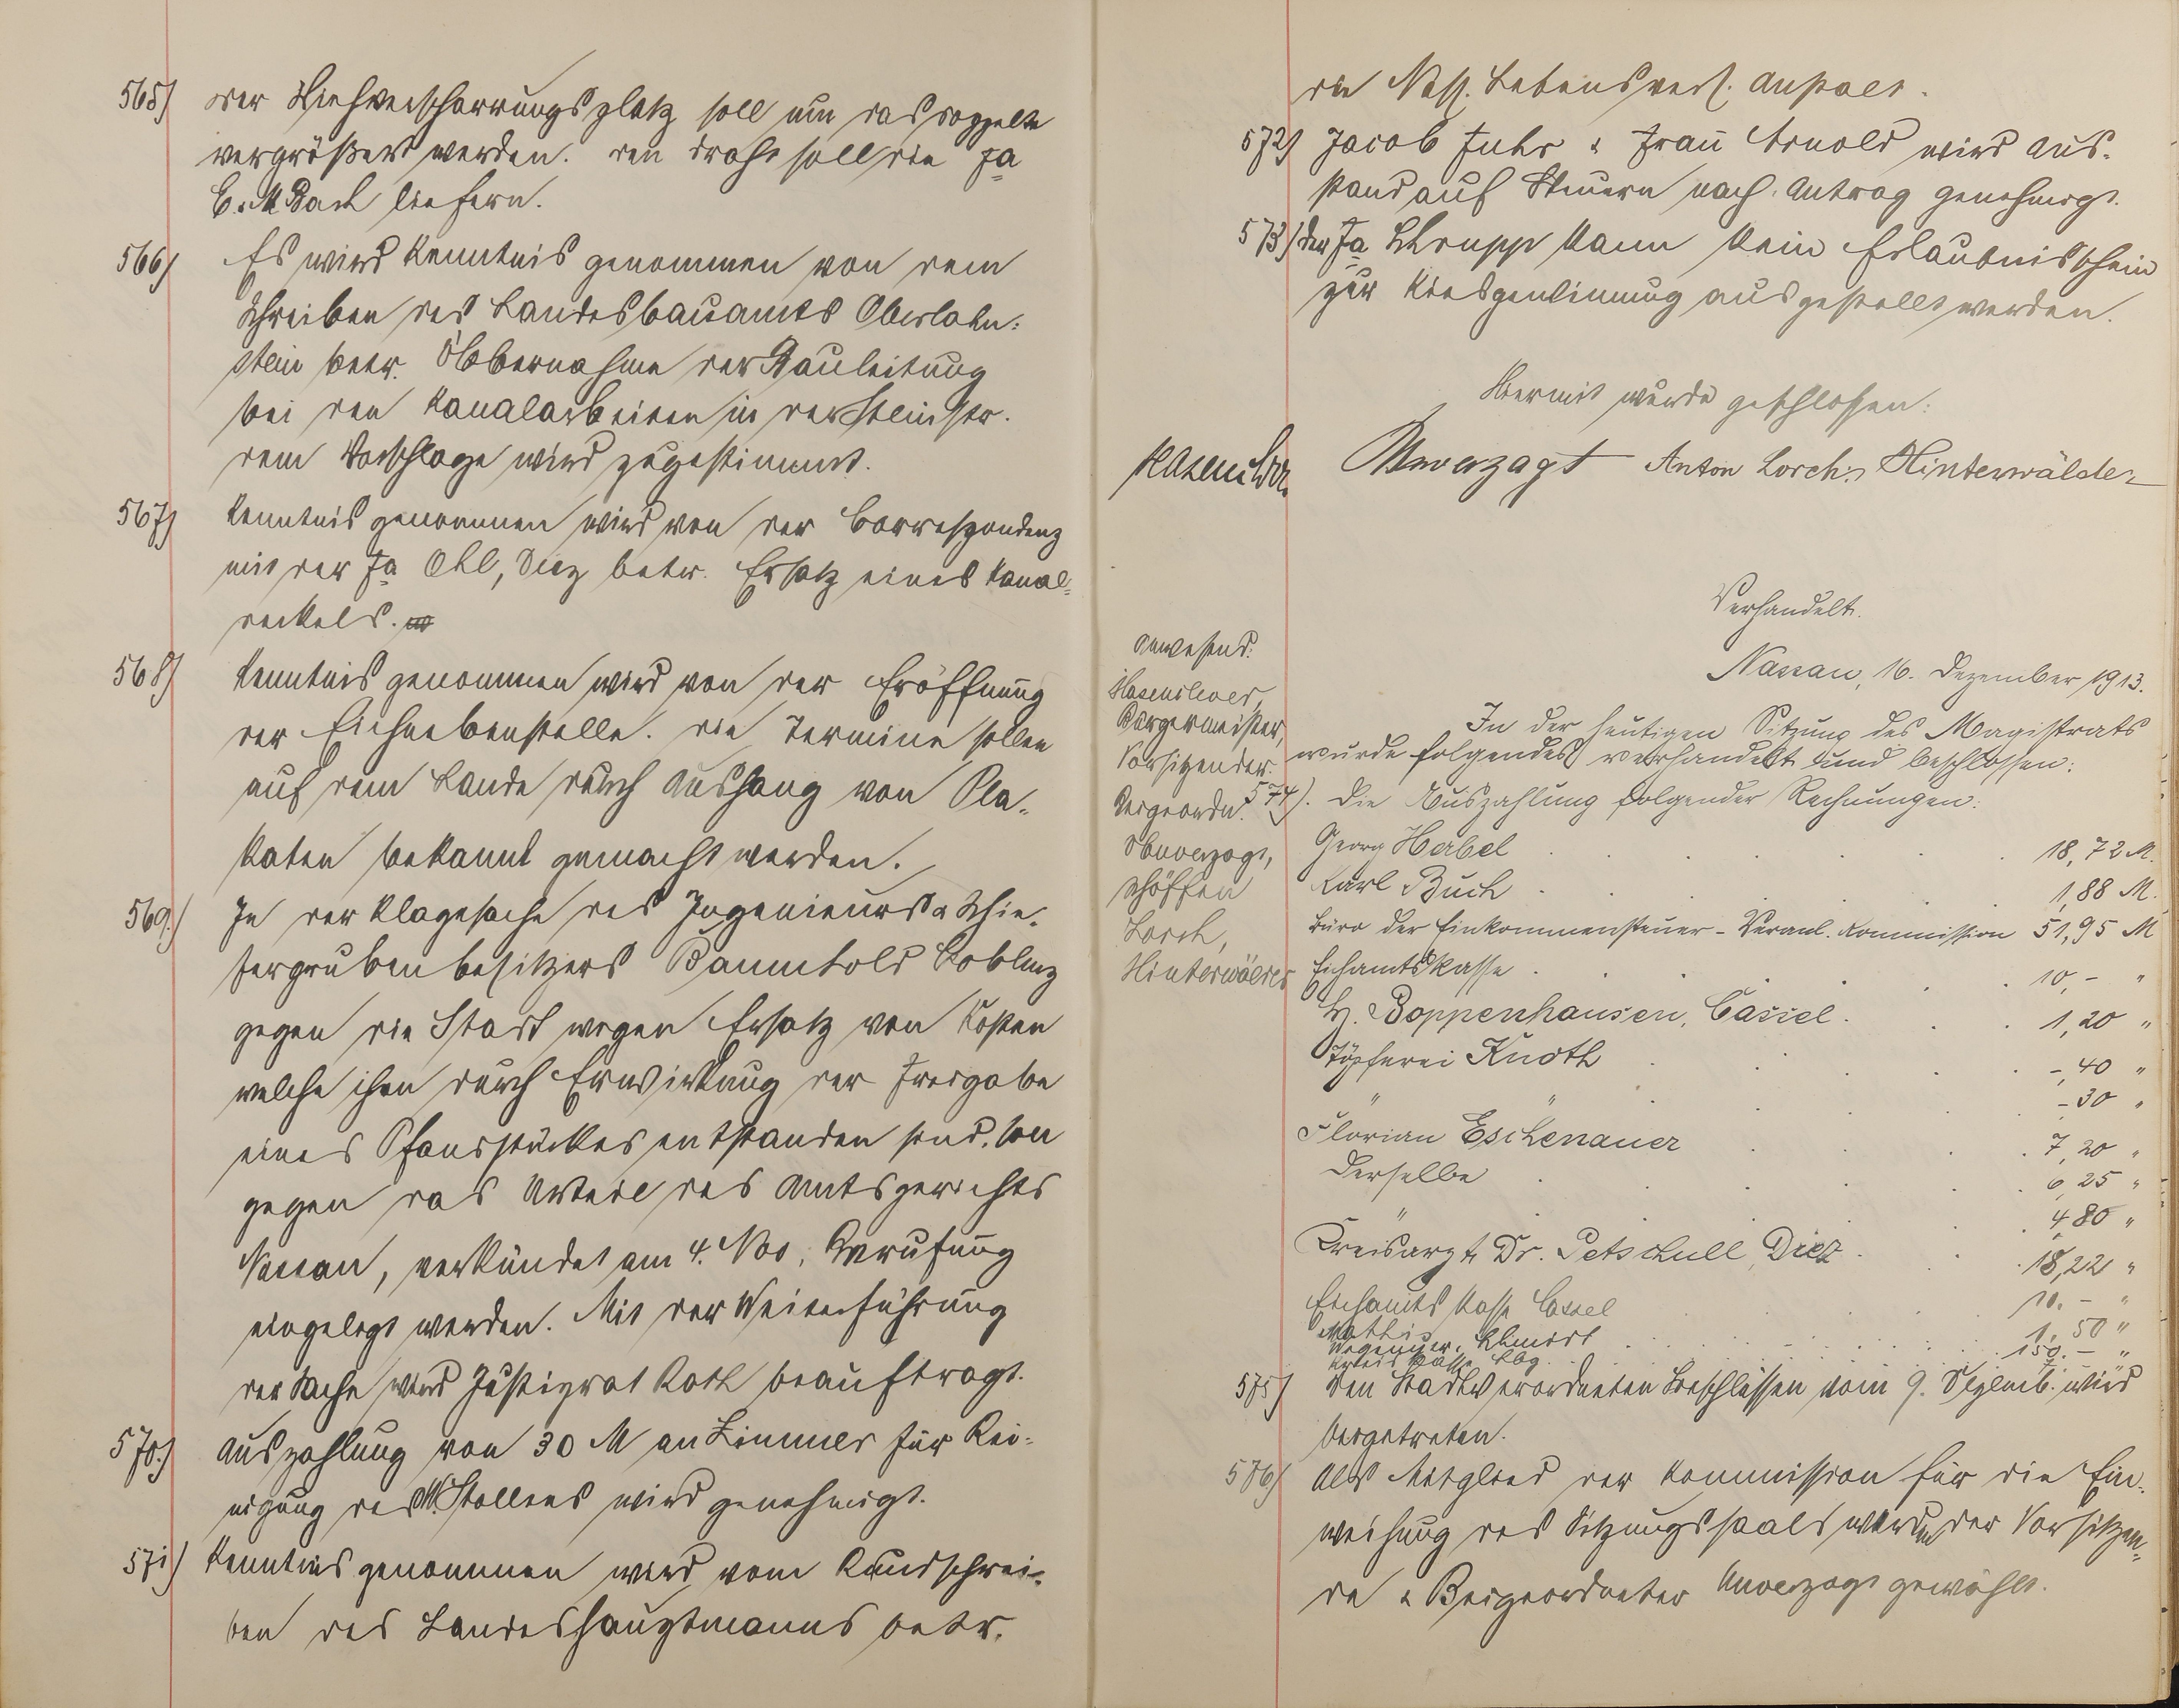 565) Der Viehverscharrungsplatz soll um das doppelte
vergrößert werden. Den Draht soll die Fa
C. M. Bach liefern.
566) Es wird Kenntnis genommen von dem
Schreiben des Landesbauamts Oberlahn-
stein betr. Übernahme der Bauleitung
bei den Kanalarbeiten in der Steinstr.
Dem Vorschlage wird zugestimmt.
567) Kenntnis genommen wird von der Correspondenz
mit der Fa Ohl, Diez betr. Ersatz eines Kanal-
deckels.
568) Kenntnis genommen wird von der Eröffnung
der Eichnebenstelle. Die Termine sollen
auf dem Lande durch Aushang von Pla-
katen bekannt gemacht werden.
569.) In der Klagesache des Ingenieurs & Schie-
fergrubenbesitzers Baumhold Coblenz
gegen die Stadt wegen Ersatz von Kosten
welche ihm durch Erwirkung der Freigabe
eines Pfandstückes entstanden sind, soll
gegen das Urteil des Amtsgerichts
Nassau, verkündet am 4. Nov. Berufung
eingelegt werden. Mit der Weiterführung
der Sache wird Justizrat Roth beauftragt.
570.) Auszahlung von 30 M an Zimmer für Rei-
nigung des W. Stollens wird genehmigt.
571) Kenntnis genommen wird vom Rundschrei-
ben des Landeshauptmanns betr.
die Nass. Lebensvers. Anstalt.
572) Jacob Fuhr & Frau Arnold wird Aus-
stand auf Steuern nach Antrag genehmigt.
573) Der Fa Schrupp kann kein Erlaubnisschein
zur Kiesgewinnung ausgestellt werden.
Hiermit wurde geschlossen:
Hasenclever Unverzagt Anton Lorch Hinterwälder
Verhandelt.
Nassau, 16. Dezember 1913.
Anwesend:
Hasenclever,
Bürgermeister,
Vorsitzender.
Beigeordn.
Unverzagt,
Schöffen
Lorch,
Hinterwälder
In der heutigen Sitzung des Magistrats
wurde folgendes verhandelt und beschlossen:
574). Die Auszahlung folgender Rechnungen:
Georg Herbel 18,72 M.
Karl Buch 1,88 M.
Büro der Einkommensteuer-Veranl. Kommission 51,95 M
Eichamtskasse 10,- "
H. Boppenhausen, Cassel. 1,20 "
Töpferei Knoth -,40 "
" " -30 "
Florian Eschenauer 7,20 "
Derselbe 6,25 "
" 4,80 "
Kreisarzt Dr. Petschull, Diez 18,22 "
Eichamts Kasse Cassel 10.- "
1,50 "
Wegewär. Schmidt 150.- "
Kreis Kasse Lbg.
575) Den Stadtverordneten Beschlüssen vom 9. Dezemb. wird
beigetreten.
576) Als Mitglied der Kommission für die Ein-
weihung des Sitzungssaals wurden der Vorsitzen-
de & Beigeordneter Unverzagt gewählt.